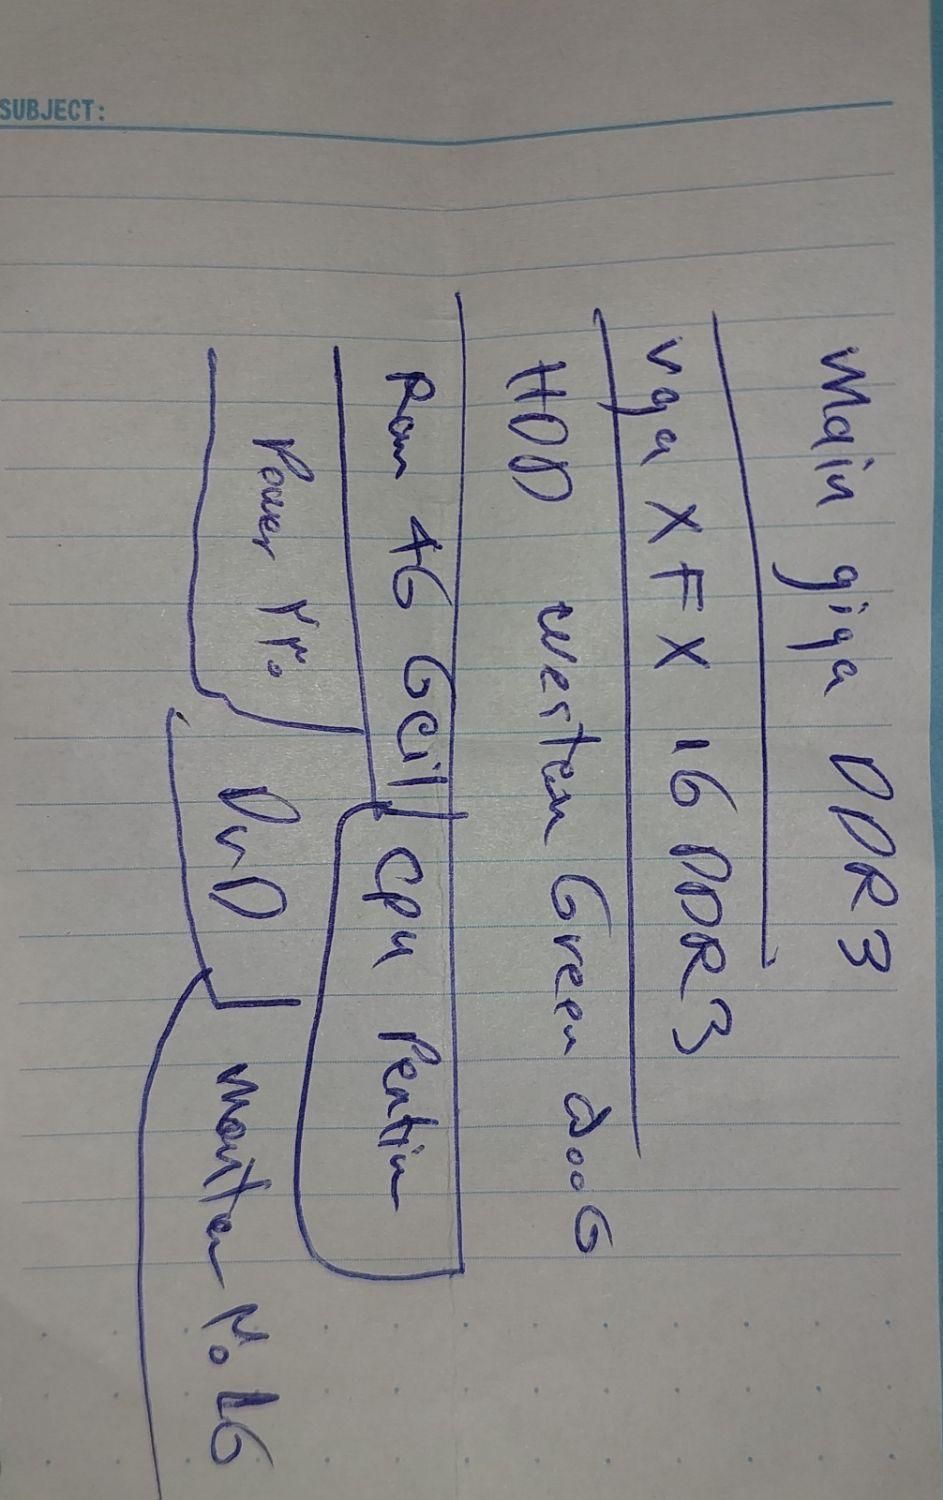 SUBJECT:
Main giga DDR3
vga XFX 1G DDR3
HDD western Green 200G
Ram 4G Geil
cpu Pentium
Power
DvD
moniter LG